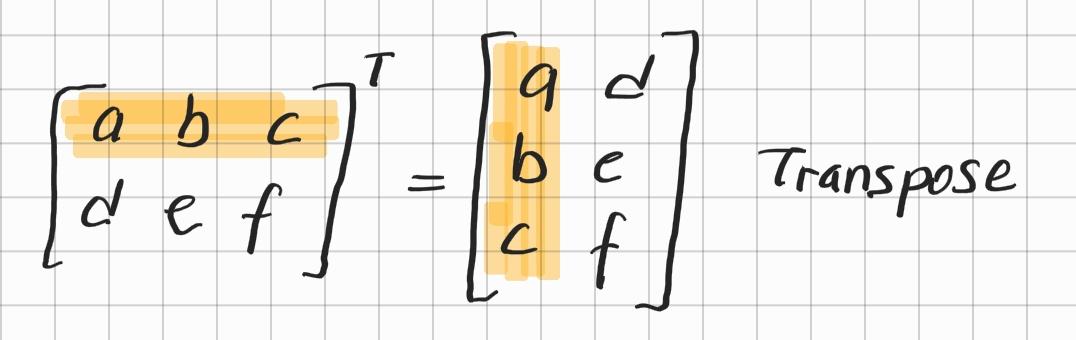 [a b c
d e f]ᵀ = [a d
b e
c f] Transpose